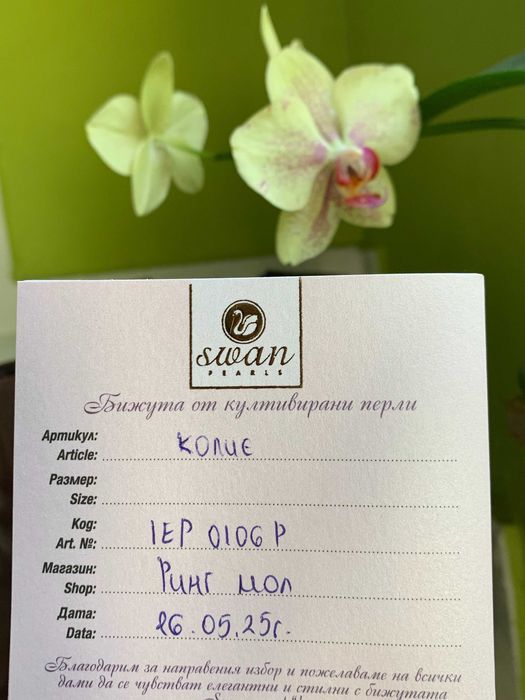 swan
PEARLS
Бижута от култивирани перли
Артикул: колие
Article:
Размер:
Size:
Код: IEP 0106 P
Art. №:
Магазин: Ринг мол
Shop:
Дата: 26.05.25г.
Data:
Благодарим за направения избор и пожелаваме на всички
дами да се чувстват елегантни и стилни с бижутата